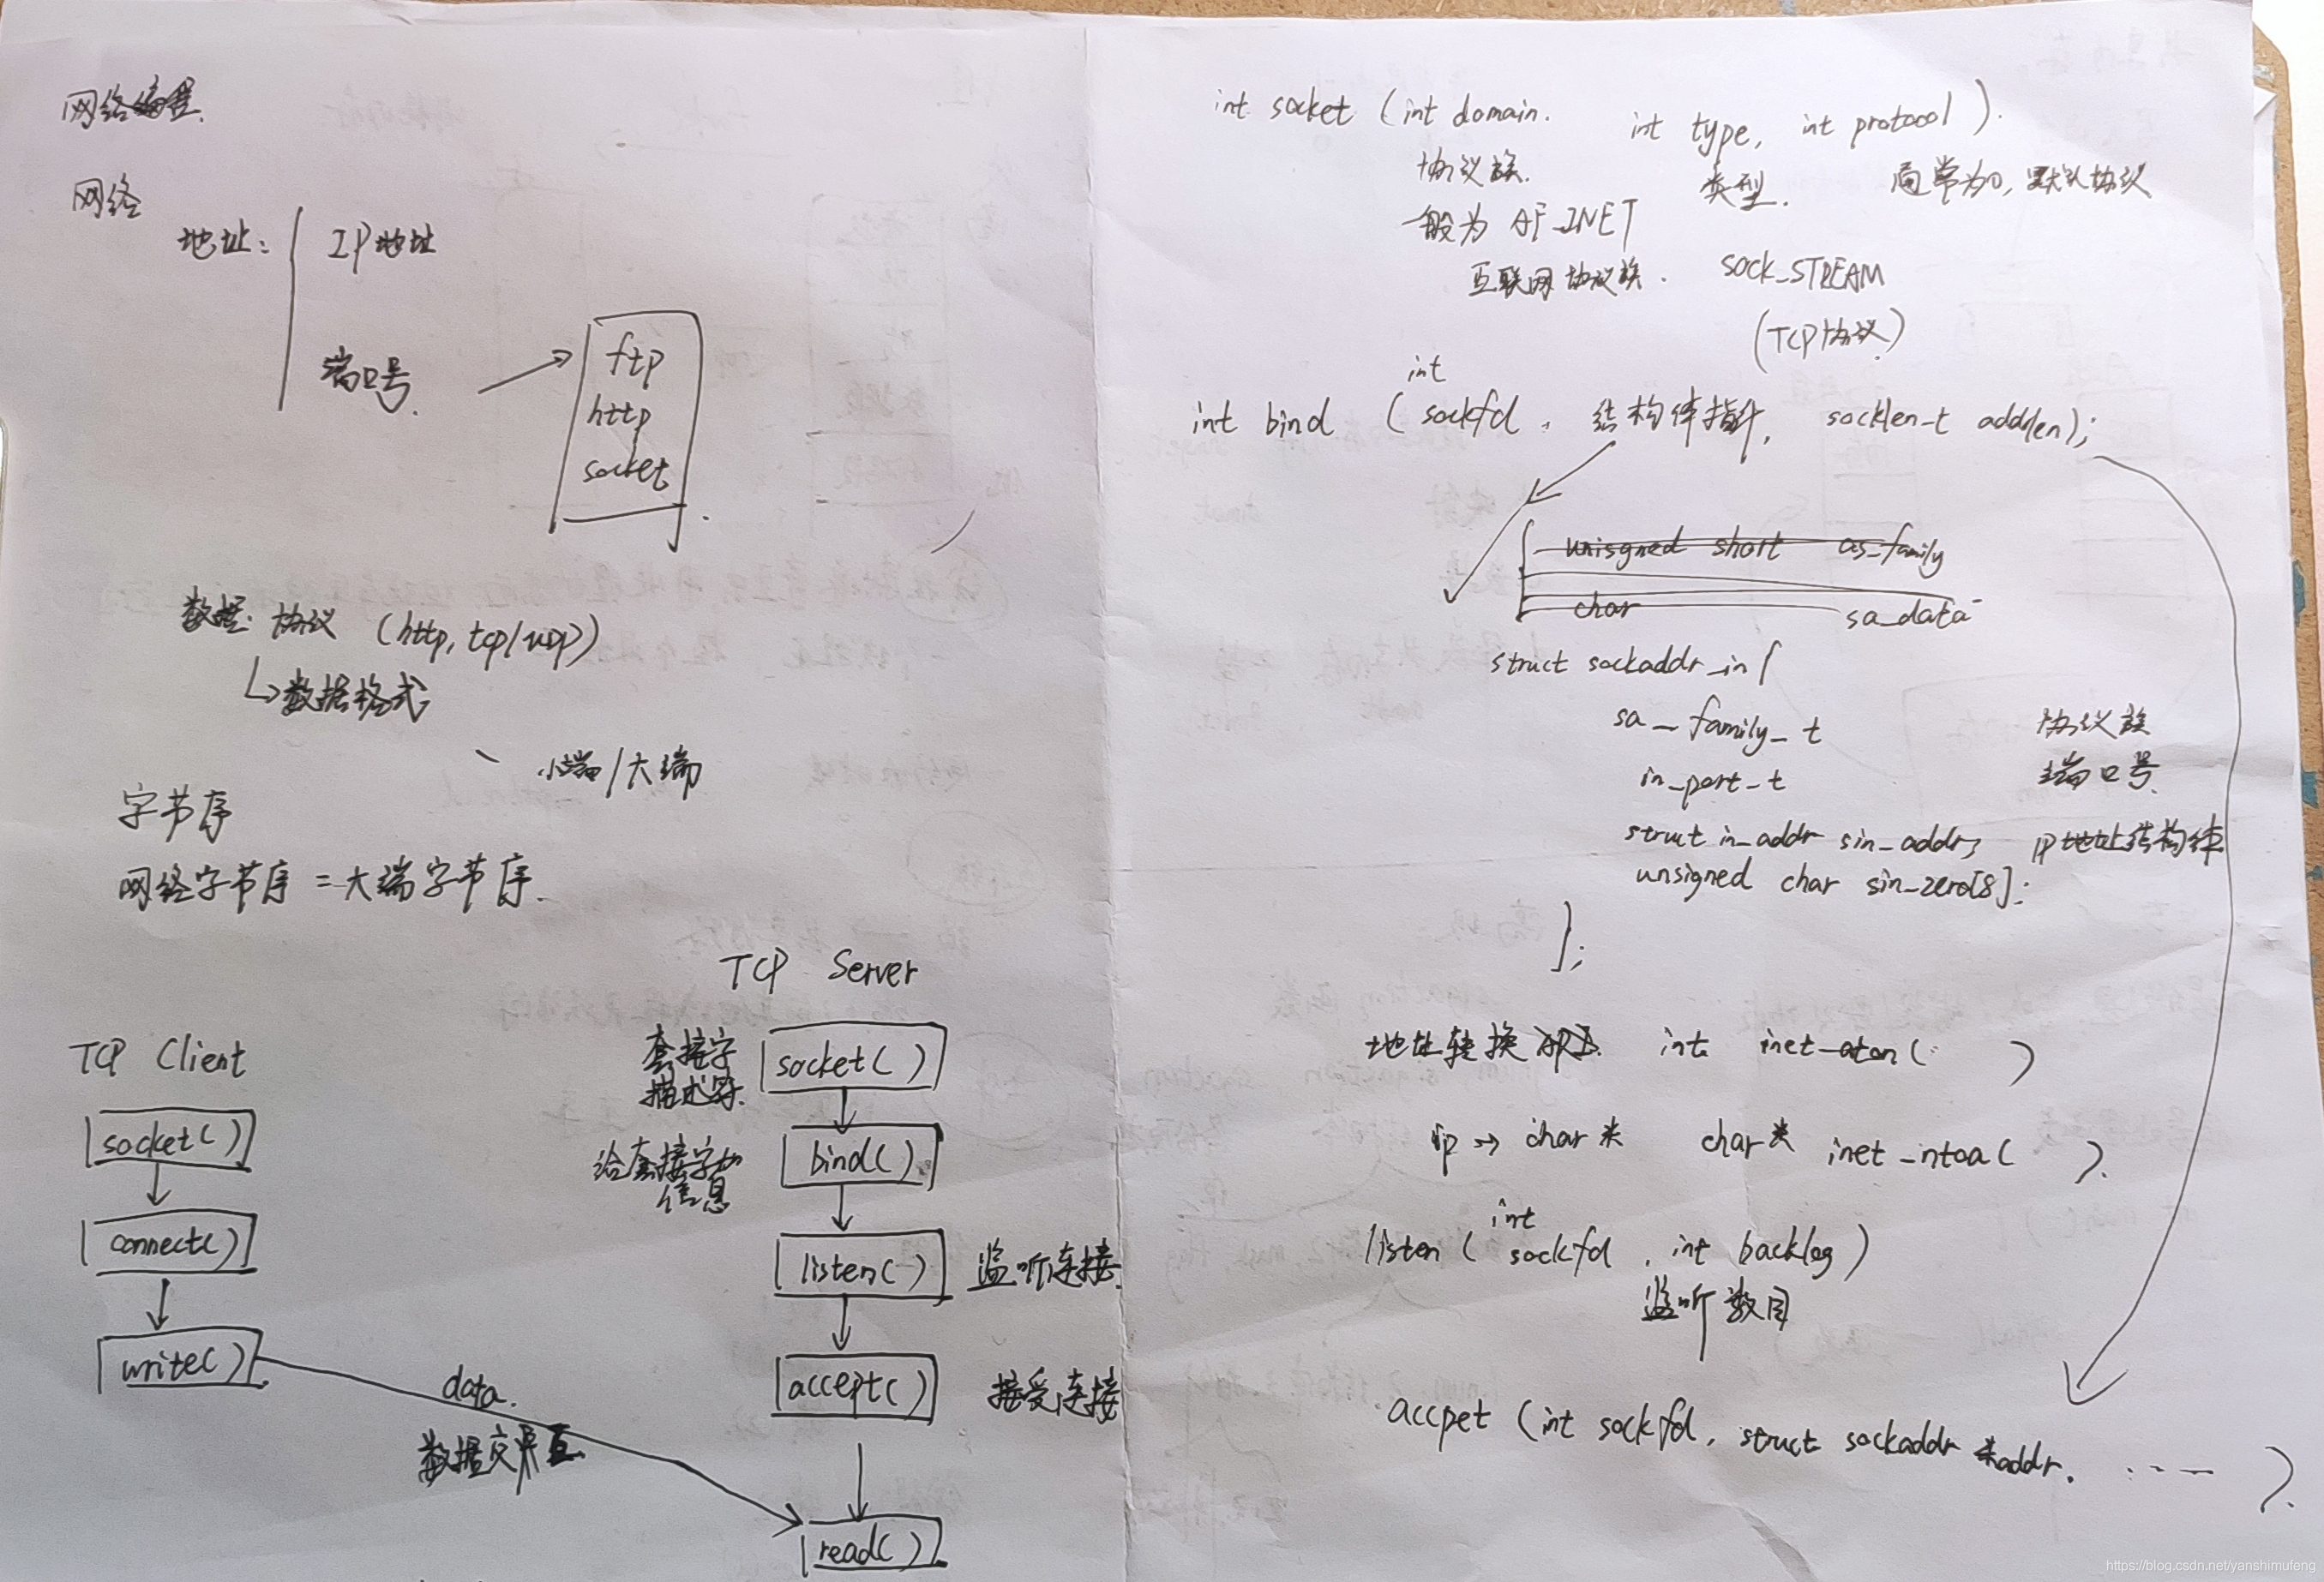 网络编程.
网络
地址:
IP地址
端口号.
ftp
http
socket
数据: 协议 (http, tcp/udp)
数据格式
小端/大端
字节序
网络字节序 = 大端字节序.
TCP Server
TCP Client
套接字
描述符.
socket( )
socket( )
给套接字加
信息
bind( )
connect( )
listen( )
监听连接.
write( )
accept( )
接受连接
data.
数据交互
read( )
int socket (int domain. int type, int protocol).
协议族.
类型.
通常为0, 默认协议
一般为 AF_INET
互联网协议族.
sock_STREAM
(TCP协议)
int
int bind ( sockfd , 结构体指针, socklen_t addrlen);
unisgned short as_family
char sa_data
struct sockaddr_in {
sa_family_t 协议族
in_port_t 端口号.
struct in_addr sin_addr; IP地址结构体
unsigned char sin_zero[8];
};
地址转换API. int inet_aton( )
ip → char* char* inet_ntoa( ).
int
listen ( sockfd , int backlog)
监听数目
accpet (int sockfd, struct sockaddr *addr. ---- ).
https://blog.csdn.net/yanshimufeng